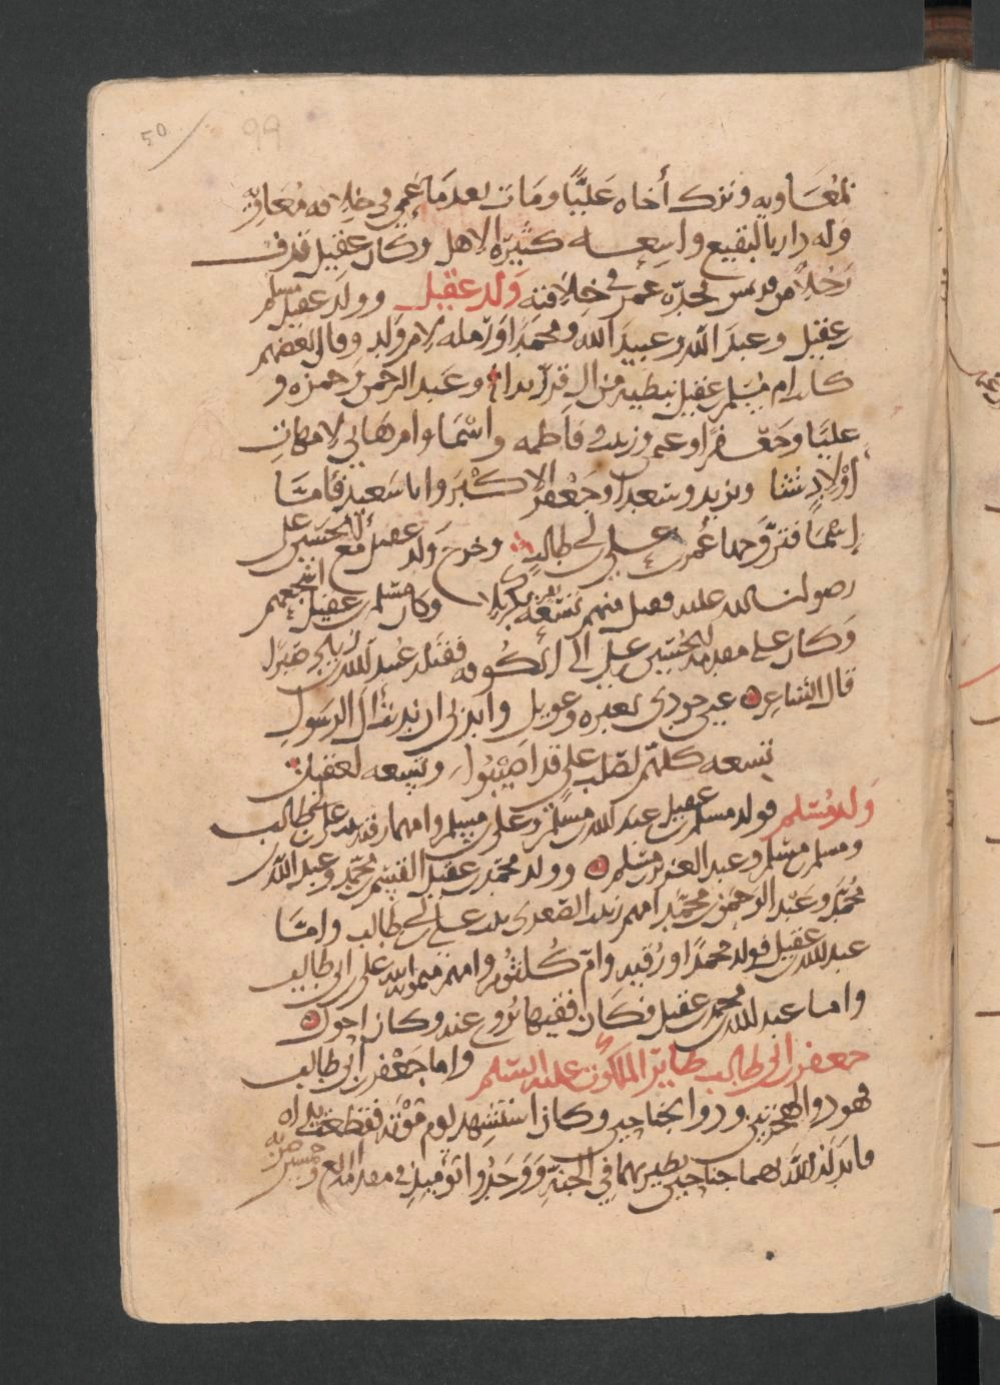 50 99
لمعاويه وترك أخاه عليًّا ومات بعد ما عمي في خلافه معاويه
وله دار بالبقيع واسعه كثيره الاهل وكان عقيل قذف
رَجُلاً من قريش فحدّه عمر في خلافته وَلَد عقيل وولد عقيل مسلم
بن عقيل وعبدَ الله وعبيدَ الله ومحمّدًا ورمله لام ولد وقال بعضهم
كانت ام مسلم بن عقيل نبطيه من ال وعبد الرحمن وحمزه و
عليًّا وجعفرًا وعيسى وزينب وفاطمه واسْمَا وام هاني لامهات
أوْلادٍ شتا ويزيد وسعدا وجَعْفرَ الاكْبَر وابا سَعيد فَامّا
اسْمَا فتزوّجها عُمر بن علي بن ابي طالبٍ وخرج ولد عقيل مع الحسين بن علي
رضوان الله عليه فقتل منهم تِسْعَه بكربلا وكان مسلم بن عقيل اشجعهم
وَكان على مقدمه الحُسَين بن علي الى الكُوفه فقتله عُبيد الله بن زياد صَبْرا
قال الشاعر عيني جودي بعبره وعويل واندبي ان ندبت آل الرسول
تسعه كلّهم لصُلب علي قد اُصِيْبُوا وتسعه لعقيل
وَلد مُسْلم فولد مسلم بن عقيل عبد الله بن مسلم وعلي بن مسلم وامهما رقيه بنت علي بن ابي طالب
ومسلم بن مسلم وعبد العزيز بن مسلم وولد محمّد بن عقيل القسم بن محمّد وعبد الله بن
محُمّد وعَبْد الرحمن بن محمّد امهم زينب الصغرى بنت علي بن ابي طالب وامّا
عبد الله بن عقيل فولد محمدًا ورُقيه وامّ كُلثُوم وامهم ميمونه بنت علي بن ابي طالب
واما عبد الله بن محمد بن عقيل فكان فقيهًا يُروى عنه وكان احول
جعفر بن ابي طالب طاير الملكوت عليه السّلم واما جَعْفر بن ابي طالب
فهو ذو الهجرتين وذو الجناحين وكان استُشهد يوم مُوْتَه فقطعت يداه
فابدله اللهُ بهما جناحين يطير بهما في الجنّه وَوَجَدُوا يَوْميذٍ في مقدمه اربع وخمسين ضربه